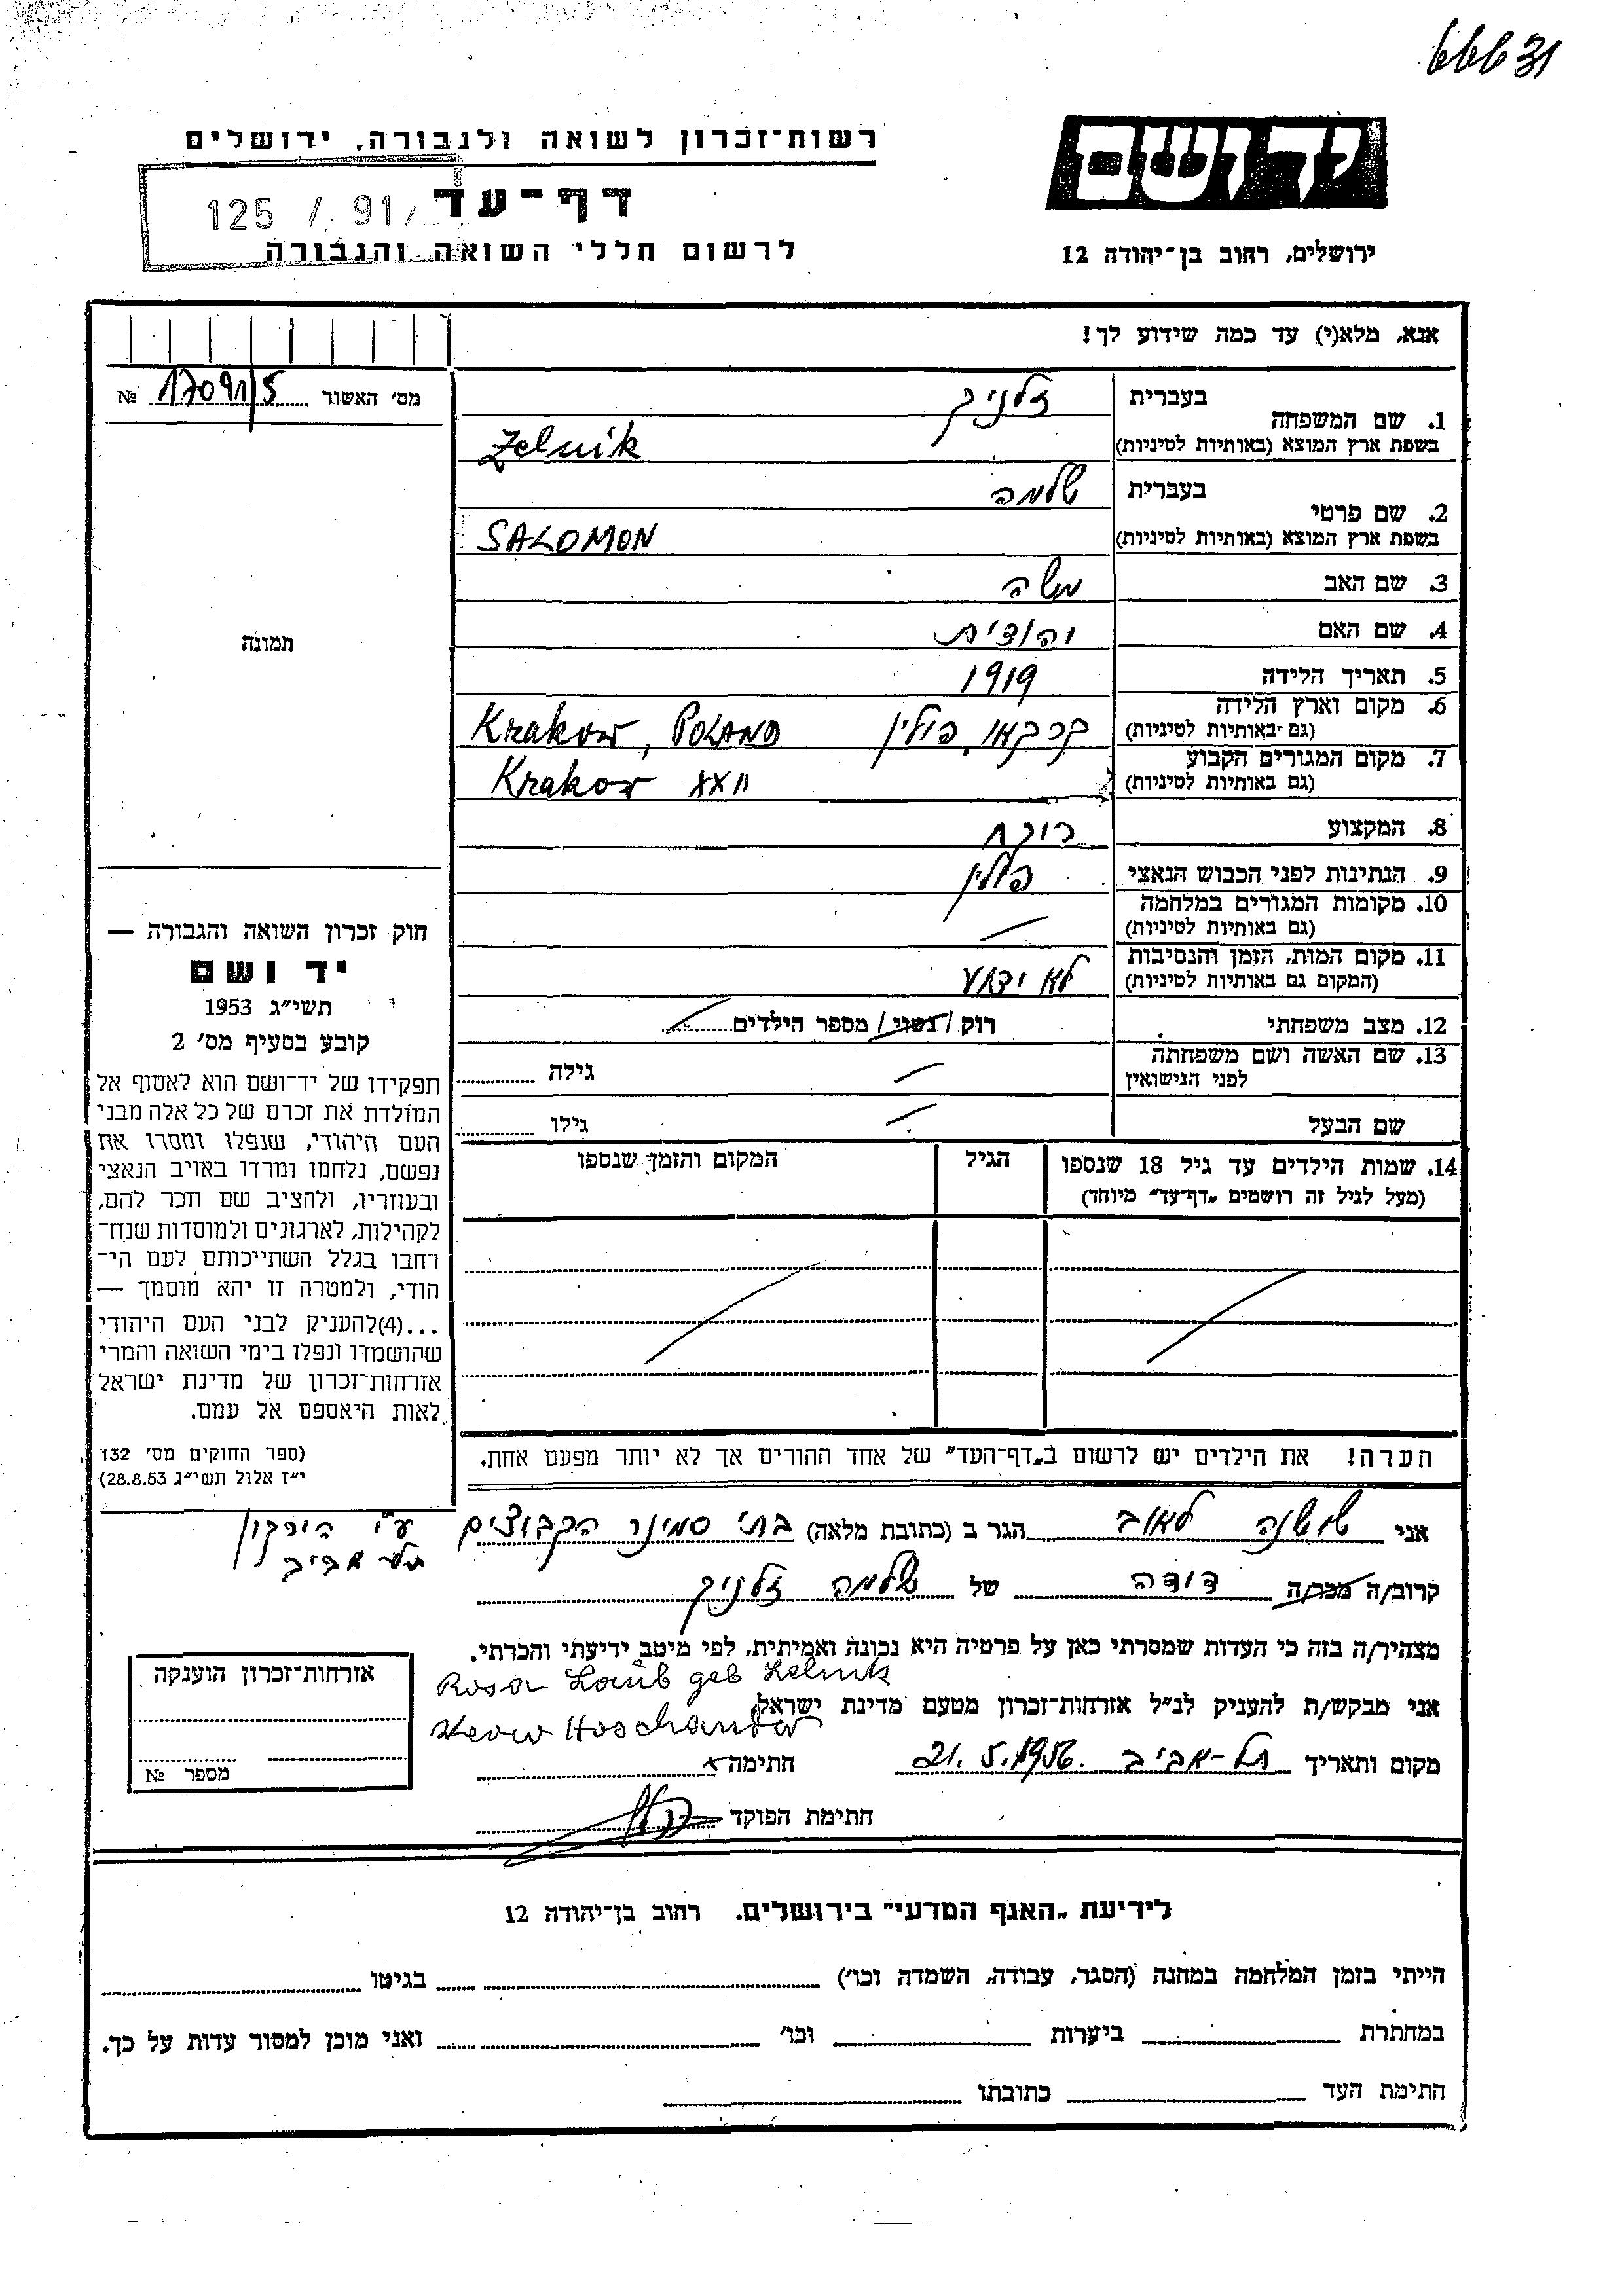 66631
יד ושם
רשות־זכרון לשואה ולגבורה, ירושלים
דף־עד
125 / 91
לרשום חללי השואה והגבורה
ירושלים, רחוב בן־יהודה 12
אנא, מלא(י) עד כמה שידוע לך!
מס' האשור 17091/5 №
1. שם המשפחה בעברית זלניק
בשפת ארץ המוצא (באותיות לטיניות) Zelnik
2. שם פרטי בעברית שלמה
בשפת ארץ המוצא (באותיות לטיניות) SALOMON
3. שם האב משה
4. שם האם יהודית
5. תאריך הלידה 1919
6. מקום וארץ הלידה
(גם באותיות לטיניות) קרקאו, פולין Krakow, POLAND
7. מקום המגורים הקבוע
(גם באותיות לטיניות) Krakow XXII
8. המקצוע רוקח
9. הנתינות לפני הכבוש הנאצי פולין
10. מקומות המגורים במלחמה
(גם באותיות לטיניות)
11. מקום המות, הזמן והנסיבות
(המקום גם באותיות לטיניות) לא ידוע
12. מצב משפחתי רוק / נשוי / מספר הילדים
13. שם האשה ושם משפחתה
לפני הנישואין גילה
שם הבעל גילו
14. שמות הילדים עד גיל 18 שנספו הגיל המקום והזמן שנספו
(מעל לגיל זה רושמים „דף־עד" מיוחד)
הערה! את הילדים יש לרשום ב„דף־העד" של אחד ההורים אך לא יותר מפעם אחת.
תמונה
חוק זכרון השואה והגבורה —
יד ושם
תשי"ג 1953
קובע בסעיף מס' 2
תפקידו של יד־ושם הוא לאסוף אל
המולדת את זכרם של כל אלה מבני
העם היהודי, שנפלו ומסרו את
נפשם, נלחמו ומרדו באויב הנאצי
ובעוזריו, ולהציב שם וזכר להם,
לקהילות, לארגונים ולמוסדות שנח־
רחבו בגלל השתייכותם לעם הי־
הודי, ולמטרה זו יהא מוסמך —
...(4)להעניק לבני העם היהודי
שהושמדו ונפלו בימי השואה והמרי
אזרחות־זכרון של מדינת ישראל
לאות היאספם אל עמם.
(ספר החוקים מס' 132
י"ז אלול תשי"ג 28.8.53)
אני שושנה לאוב הגר ב (כתובת מלאה) בתי סמינר הקבוצים ע"י הירקון
תל אביב
קרוב/ה מכר/ה דודה של שלמה זלניק
מצהיר/ה בזה כי העדות שמסרתי כאן על פרטיה היא נכונה ואמיתית, לפי מיטב ידיעתי והכרתי.
Rosa Laub geb Zelnik
אני מבקש/ת להעניק לנ"ל אזרחות־זכרון מטעם מדינת ישראל
מקום ותאריך תל-אביב 21.5.1956. חתימה
חתימת הפוקד
אזרחות־זכרון הוענקה
מספר №
לידיעת „האגף המדעי" בירושלים. רחוב בן־יהודה 12
הייתי בזמן המלחמה במחנה (הסגר, עבודה, השמדה וכו') בגיטו
במחתרת ביערות וכו' ואני מוכן למסור עדות על כך.
חתימת העד כתובתו